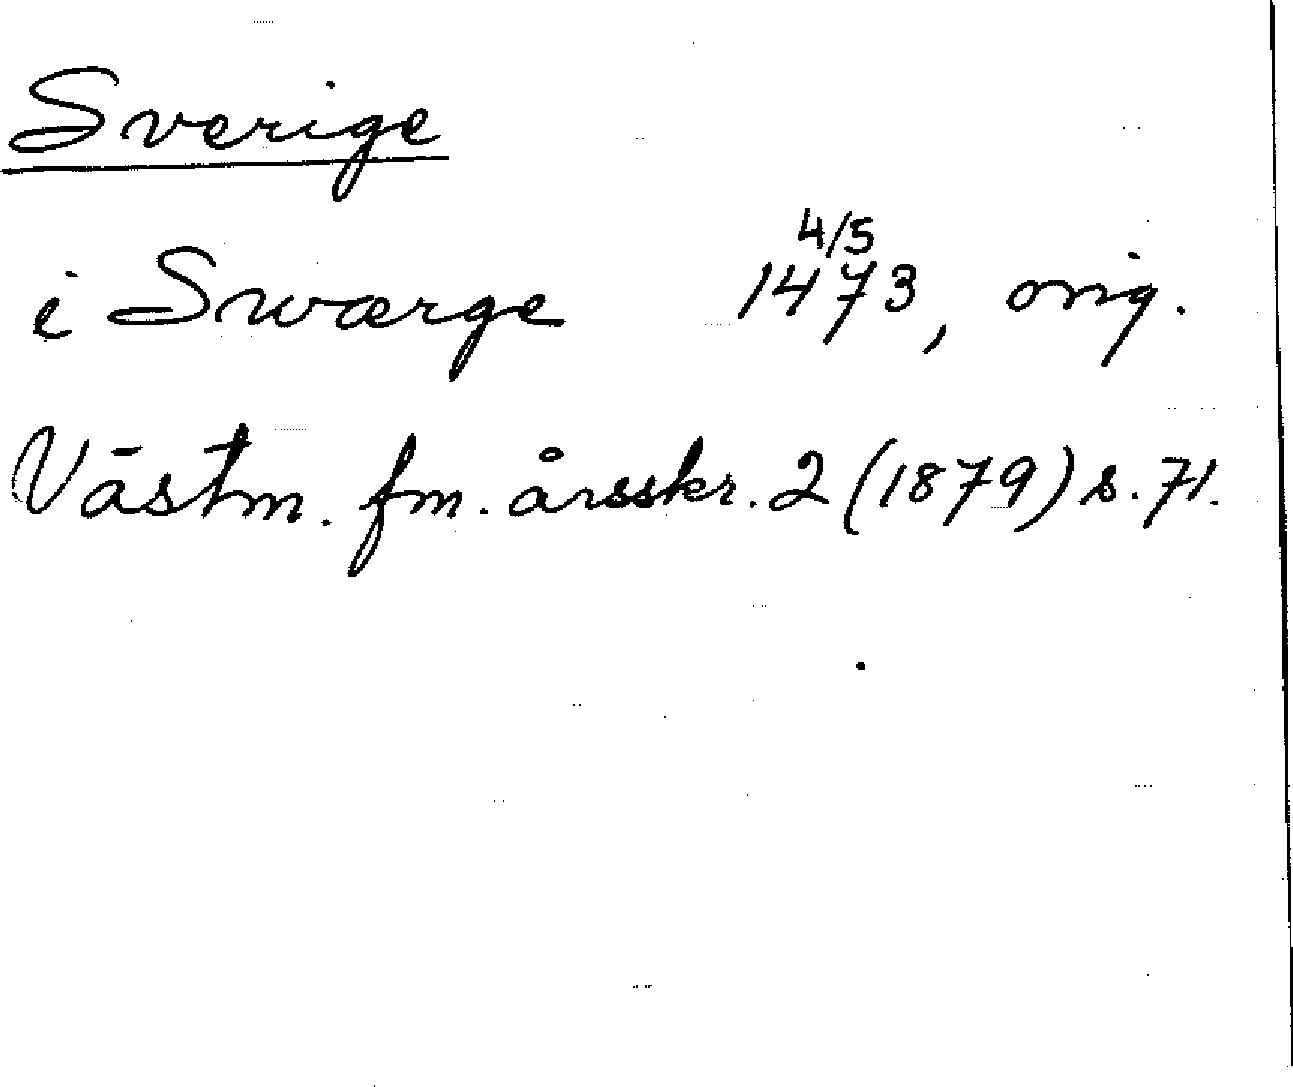 Sverige
i Swærge 1473 4/5, orig.
Västm. fm. årsskr. 2 (1879) s. 71.